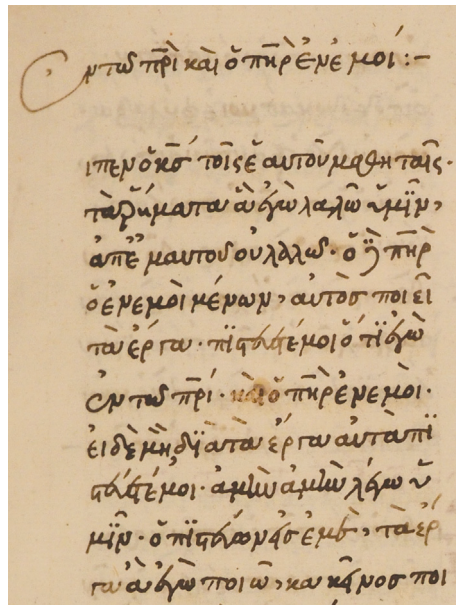 ἐν τῶ πρὶ καὶ ὁ πηρ ἐν ἐμοί :–
ιπεν ὁ κς τοῖς ἑαυτοῦ μαθηταῖς·
τὰ ῥήματα ἃ ἐγὼ λαλῶ ὑμῖν,
ἀπ' ἐμαυτοῦ οὐ λαλῶ· ὁ δὲ πηρ
ὁ ἐν ἐμοὶ μένων, αὐτὸς ποιεῖ
τὰ ἔργα· πιστεύετέ μοι ὅτι ἐγὼ
ἐν τῶ πρί· καὶ ὁ πηρ ἐν ἐμοὶ·
εἰ δὲ μὴ διὰ τὰ ἔργα αὐτὰ πι
στεύετέ μοι· ἀμὴν ἀμὴν λέγω ὑ
μῖν· ὁ πιστεύων εἰς ἐμὲ, τὰ ἔρ
γα ἃ ἐγὼ ποιῶ, κακεῖνος ποι